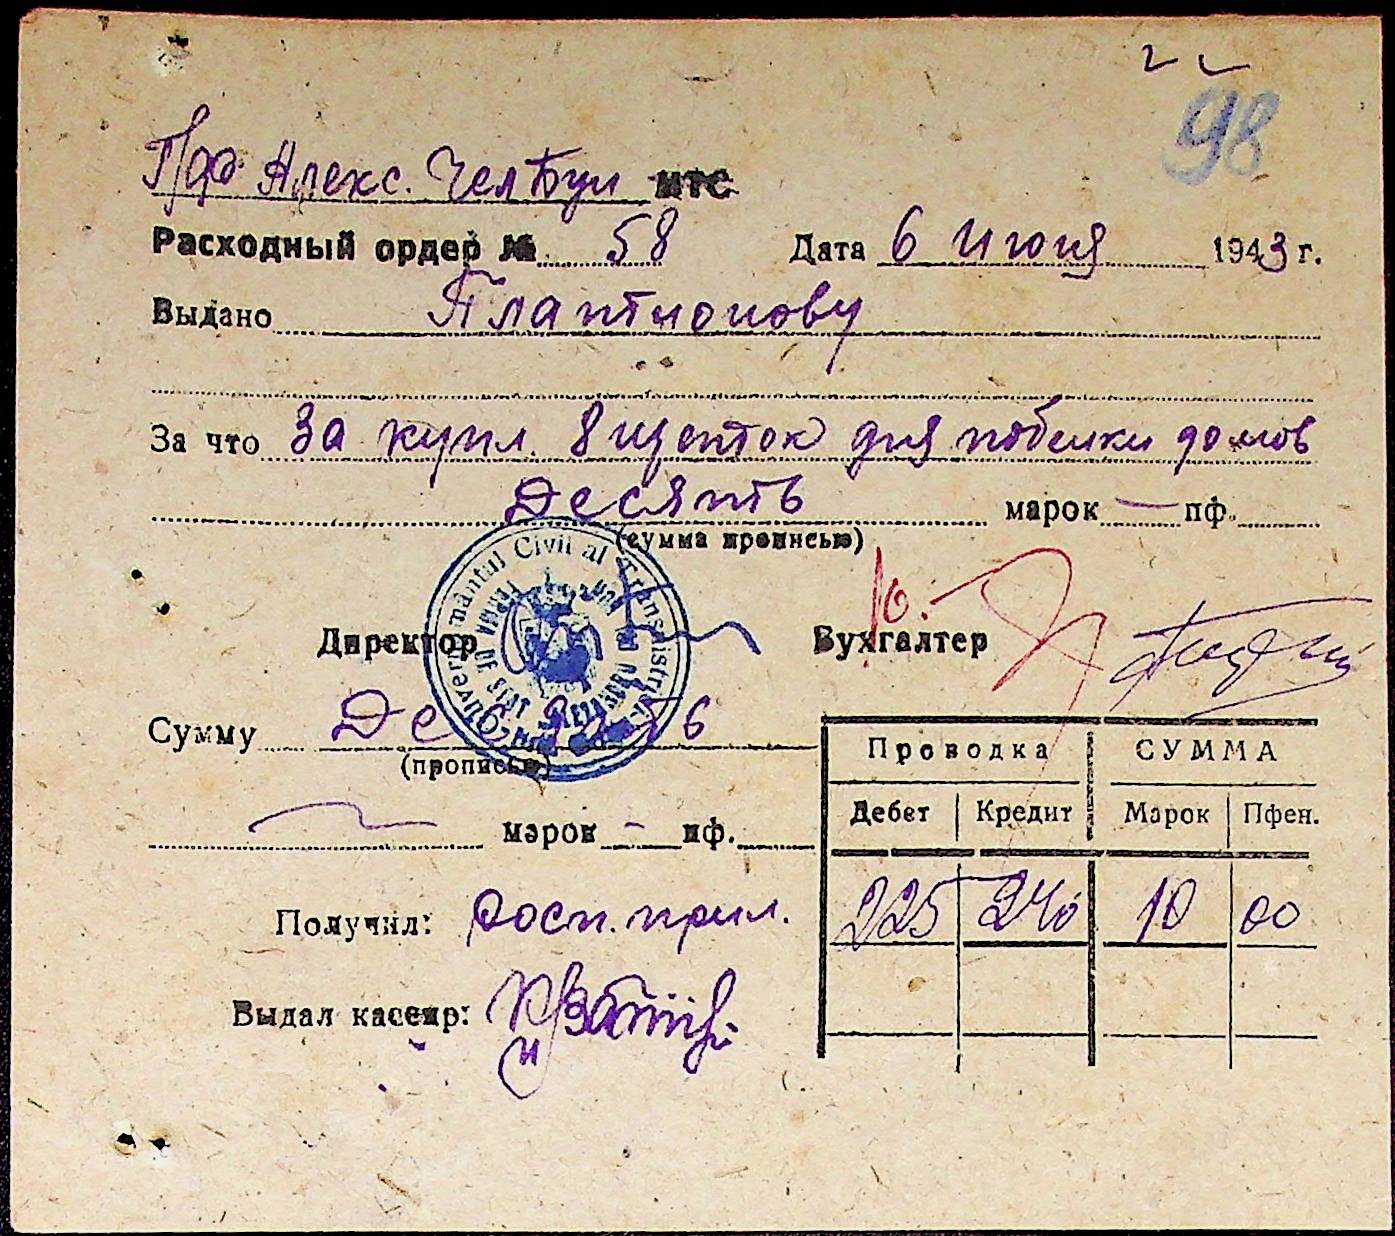 98
Алекс. Челбун МТС
Расходный ордер № 58 Дата 6 июня 1943 г.
Выдано Плаптионову
За что За купл. 8 щеток для побелки домов
Десять марок — пф.
(сумма прописью)
Guvernământul Civil al Transnistriei
Директор Бухгалтер
Сумму Десять
(прописью)
марок - пф.
Проводка СУММА
Дебет Кредит Марок Пфен.
225 240 10 00
Получил: Росп. прил.
Выдал кассир: